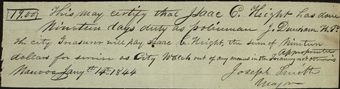 19.00 This may certify that Isaac C. Height has done
Nineteen days duty as policeman J. Dunham H. P.
The city Treasurer will pay Isaac C. Height, the sum of Nineteen
dollars for service as City Watch out of any money in the Treasury not otherwise appropriated
Nauvoo Jany 14th 1844 Joseph Smith
Mayor